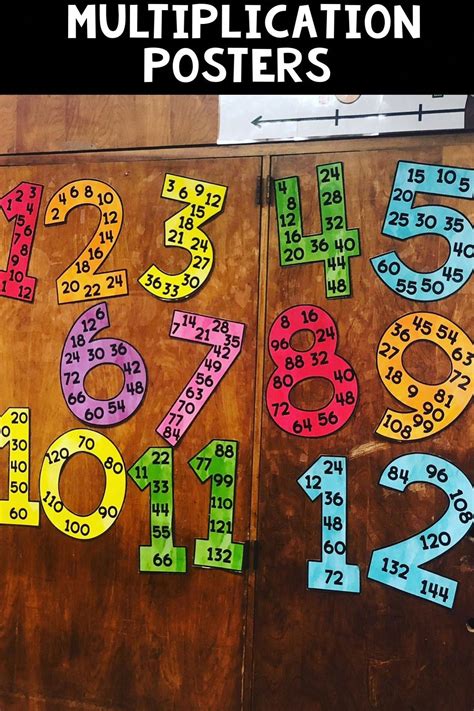 MULTIPLICATION
POSTERS
1 2 3 4 5 6 7 8 9 10 11 12
2 4 6 8 10 12 14 16 18 20 22 24
3 6 9 12 15 18 21 24 27 30 33 36
4 8 12 16 20 24 28 32 36 40 44 48
5 10 15 20 25 30 35 40 45 50 55 60
6 12 18 24 30 36 42 48 54 60 66 72
7 14 21 28 35 42 49 56 63 70 77 84
8 16 24 32 40 48 56 64 72 80 88 96
9 18 27 36 45 54 63 72 81 90 99 108
10 20 30 40 50 60 70 80 90 100 110 120
11 22 33 44 55 66 77 88 99 110 121 132
12 24 36 48 60 72 84 96 108 120 132 144